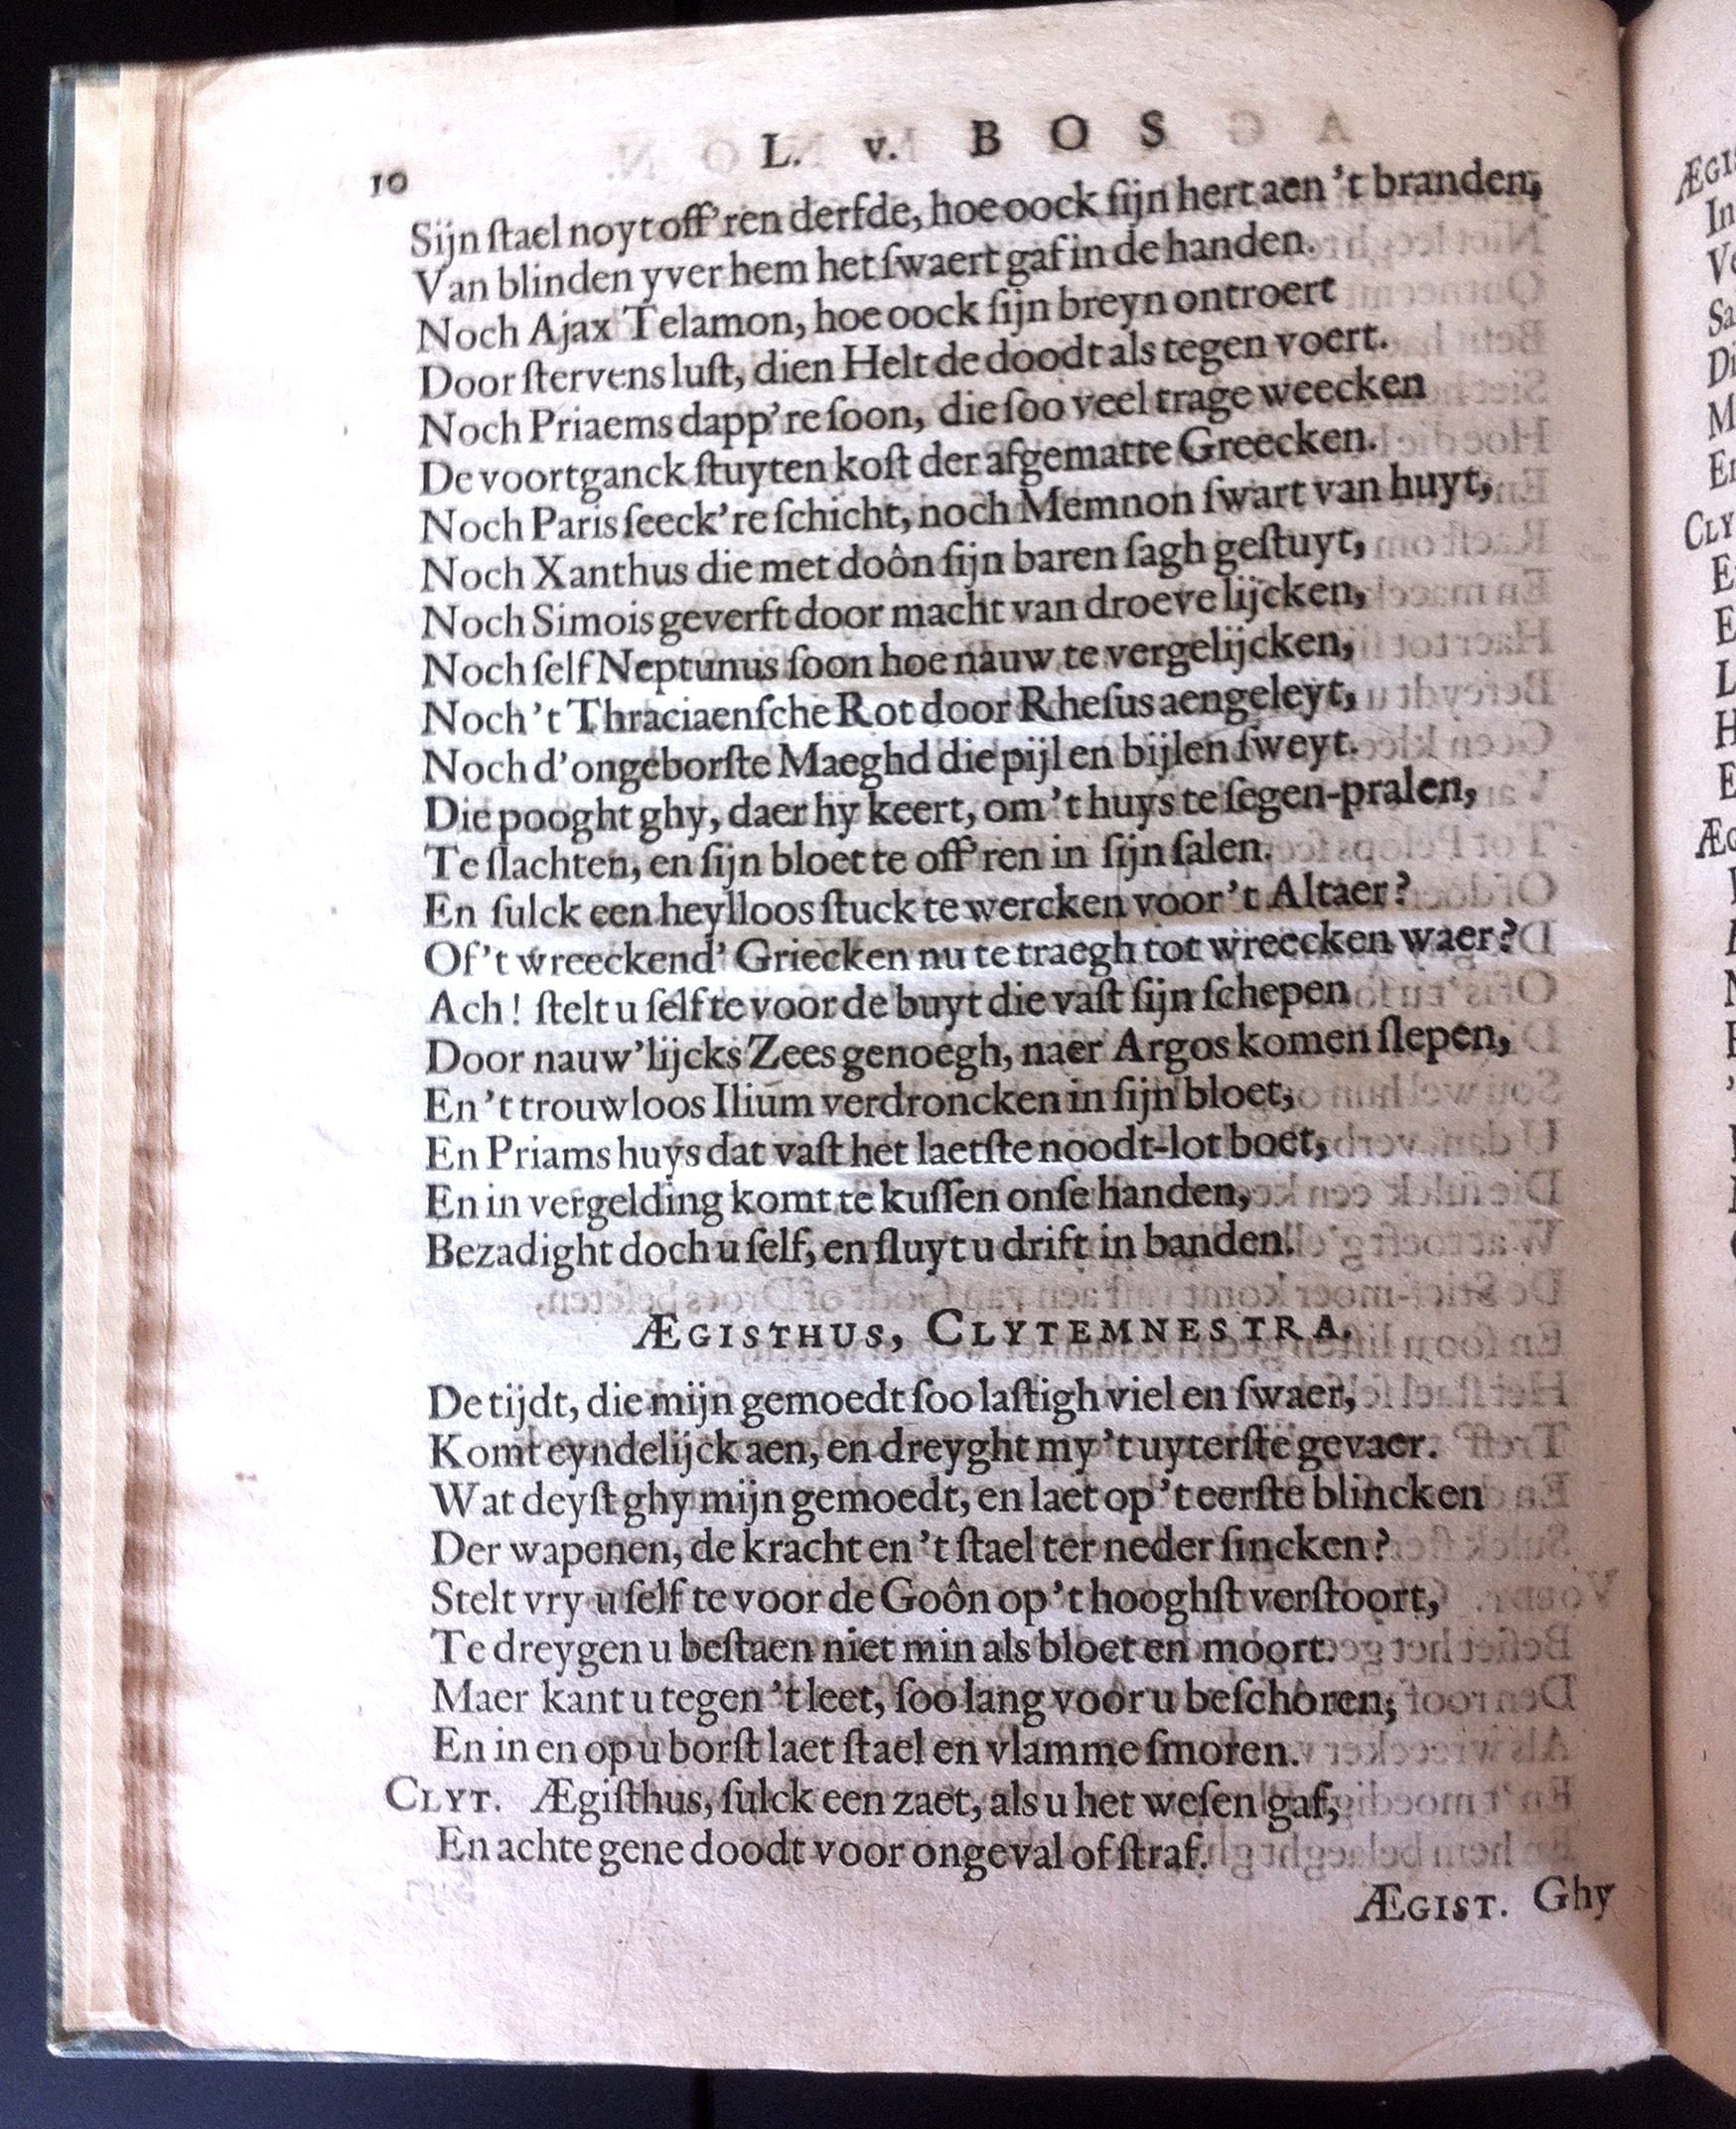 10
L. v. BOS
Sijn ſtael noyt off'ren derfde, hoe oock ſijn hert aen 't branden,
Van blinden yver hem het ſwaert gaf in de handen.
Noch Ajax Telamon, hoe oock ſijn breyn ontroert
Door ſtervens luſt, dien Helt de doodt als tegen voert.
Noch Priaems dapp're ſoon, die ſoo veel trage weecken
De voortganck ſtuyten koſt der afgematte Greecken.
Noch Paris ſeeck're ſchicht, noch Memnon ſwart van huyt,
Noch Xanthus die met doôn ſijn baren ſagh geſtuyt,
Noch Simois geverft door macht van droeve lijcken,
Noch ſelf Neptunus ſoon hoe nauw te vergelijcken,
Noch 't Thraciaenſche Rot door Rheſus aengeleyt,
Noch d'ongeborſte Maeghd die pijl en bijlen ſweyt.
Die pooght ghy, daer hy keert, om 't huys te ſegen-pralen,
Te ſlachten, en ſijn bloet te off'ren in ſijn ſalen.
En ſulck een heylloos ſtuck te wercken voor 't Altaer?
Of 't wreeckend' Griecken nu te traegh tot wreecken waer?
Ach! ſtelt u ſelf te voor de buyt die vaſt ſijn ſchepen
Door nauw'lijcks Zees genoegh, naer Argos komen ſlepen,
En 't trouwloos Ilium verdroncken in ſijn bloet,
En Priams huys dat vaſt het laetſte noodt-lot boet,
En in vergelding komt te kuſſen onſe handen,
Bezadight doch u ſelf, en ſluyt u drift in banden.
ÆGISTHUS, CLYTEMNESTRA.
De tijdt, die mijn gemoedt ſoo laſtigh viel en ſwaer,
Komt eyndelijck aen, en dreyght my 't uyterſte gevaer.
Wat deyſt ghy mijn gemoedt, en laet op 't eerſte blincken
Der wapenen, de kracht en 't ſtael ter neder ſincken?
Stelt vry u ſelf te voor de Goôn op 't hooghſt verſtoort,
Te dreygen u beſtaen niet min als bloet en moort.
Maer kant u tegen 't leet, ſoo lang voor u beſchoren;
En in en op u borſt laet ſtael en vlamme ſmoren.
CLYT. Ægiſthus, ſulck een zaet, als u het weſen gaf,
En achte gene doodt voor ongeval of ſtraf.
ÆGIST. Ghy
ÆGI
In
V
Sa
Di
M
En
CLY
E
E
L
H
E
ÆG